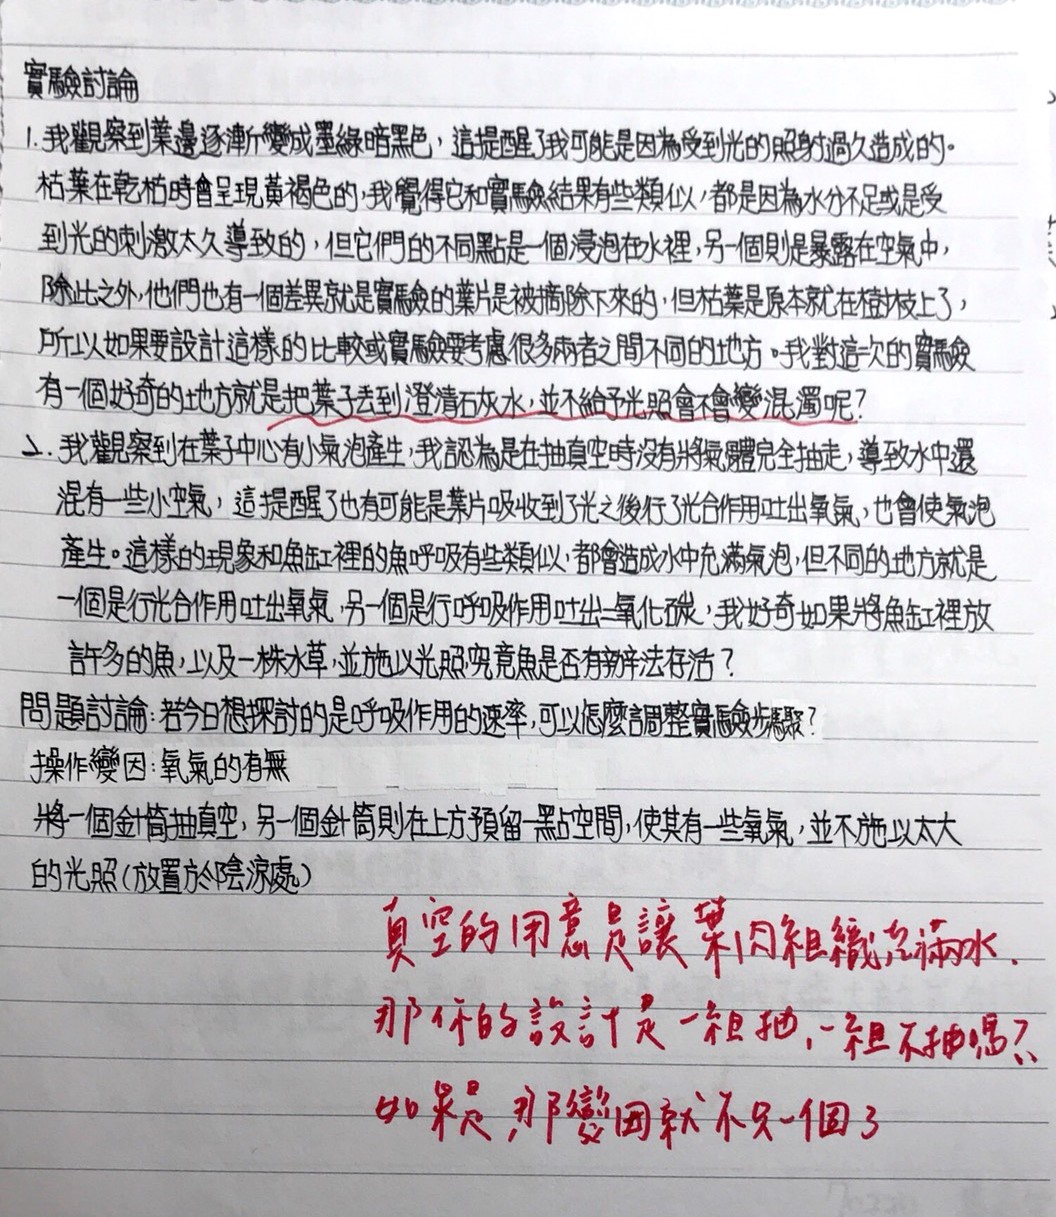 實驗討論
1. 我觀察到葉邊逐漸變成墨綠暗黑色，這提醒了我可能是因為受到光的照射過久造成的。
枯葉在乾枯時會呈現黃褐色的，我覺得它和實驗結果有些類似，都是因為水分不足或是受
到光的刺激太久導致的，但它們的不同點是一個浸泡在水裡，另一個則是暴露在空氣中，
除此之外，他們也有一個差異就是實驗的葉片是被摘除下來的，但枯葉是原本就在樹枝上了，
所以如果要設計這樣的比較或實驗要考慮很多兩者之間不同的地方。我對這一次的實驗
有一個好奇的地方就是把葉子丟到澄清石灰水，並不給予光照會不會變混濁呢？
2. 我觀察到在葉子中心有小氣泡產生，我認為是在抽真空時沒有將氣體完全抽走，導致水中還
混有一些小空氣，這提醒了也有可能是葉片吸收到了光之後行了光合作用吐出氧氣，也會使氣泡
產生。這樣的現象和魚缸裡的魚呼吸有些類似，都會造成水中充滿氣泡，但不同的地方就是
一個是行光合作用吐出氧氣，另一個是行呼吸作用吐出二氧化碳，我好奇如果將魚缸裡放
許多的魚，以及一株水草，並施以光照究竟魚是否有辦法存活？
問題討論：若今日想探討的是呼吸作用的速率，可以怎麼調整實驗步驟？
操作變因：氧氣的有無
將一個針筒抽真空，另一個針筒則在上方預留一點空間，使其有一些氧氣，並不施以太大
的光照（放置於陰涼處）
真空的用意是讓葉肉組織充滿水．
那你的設計是一組抽，一組不抽嗎？
如果是，那變因就不只一個了